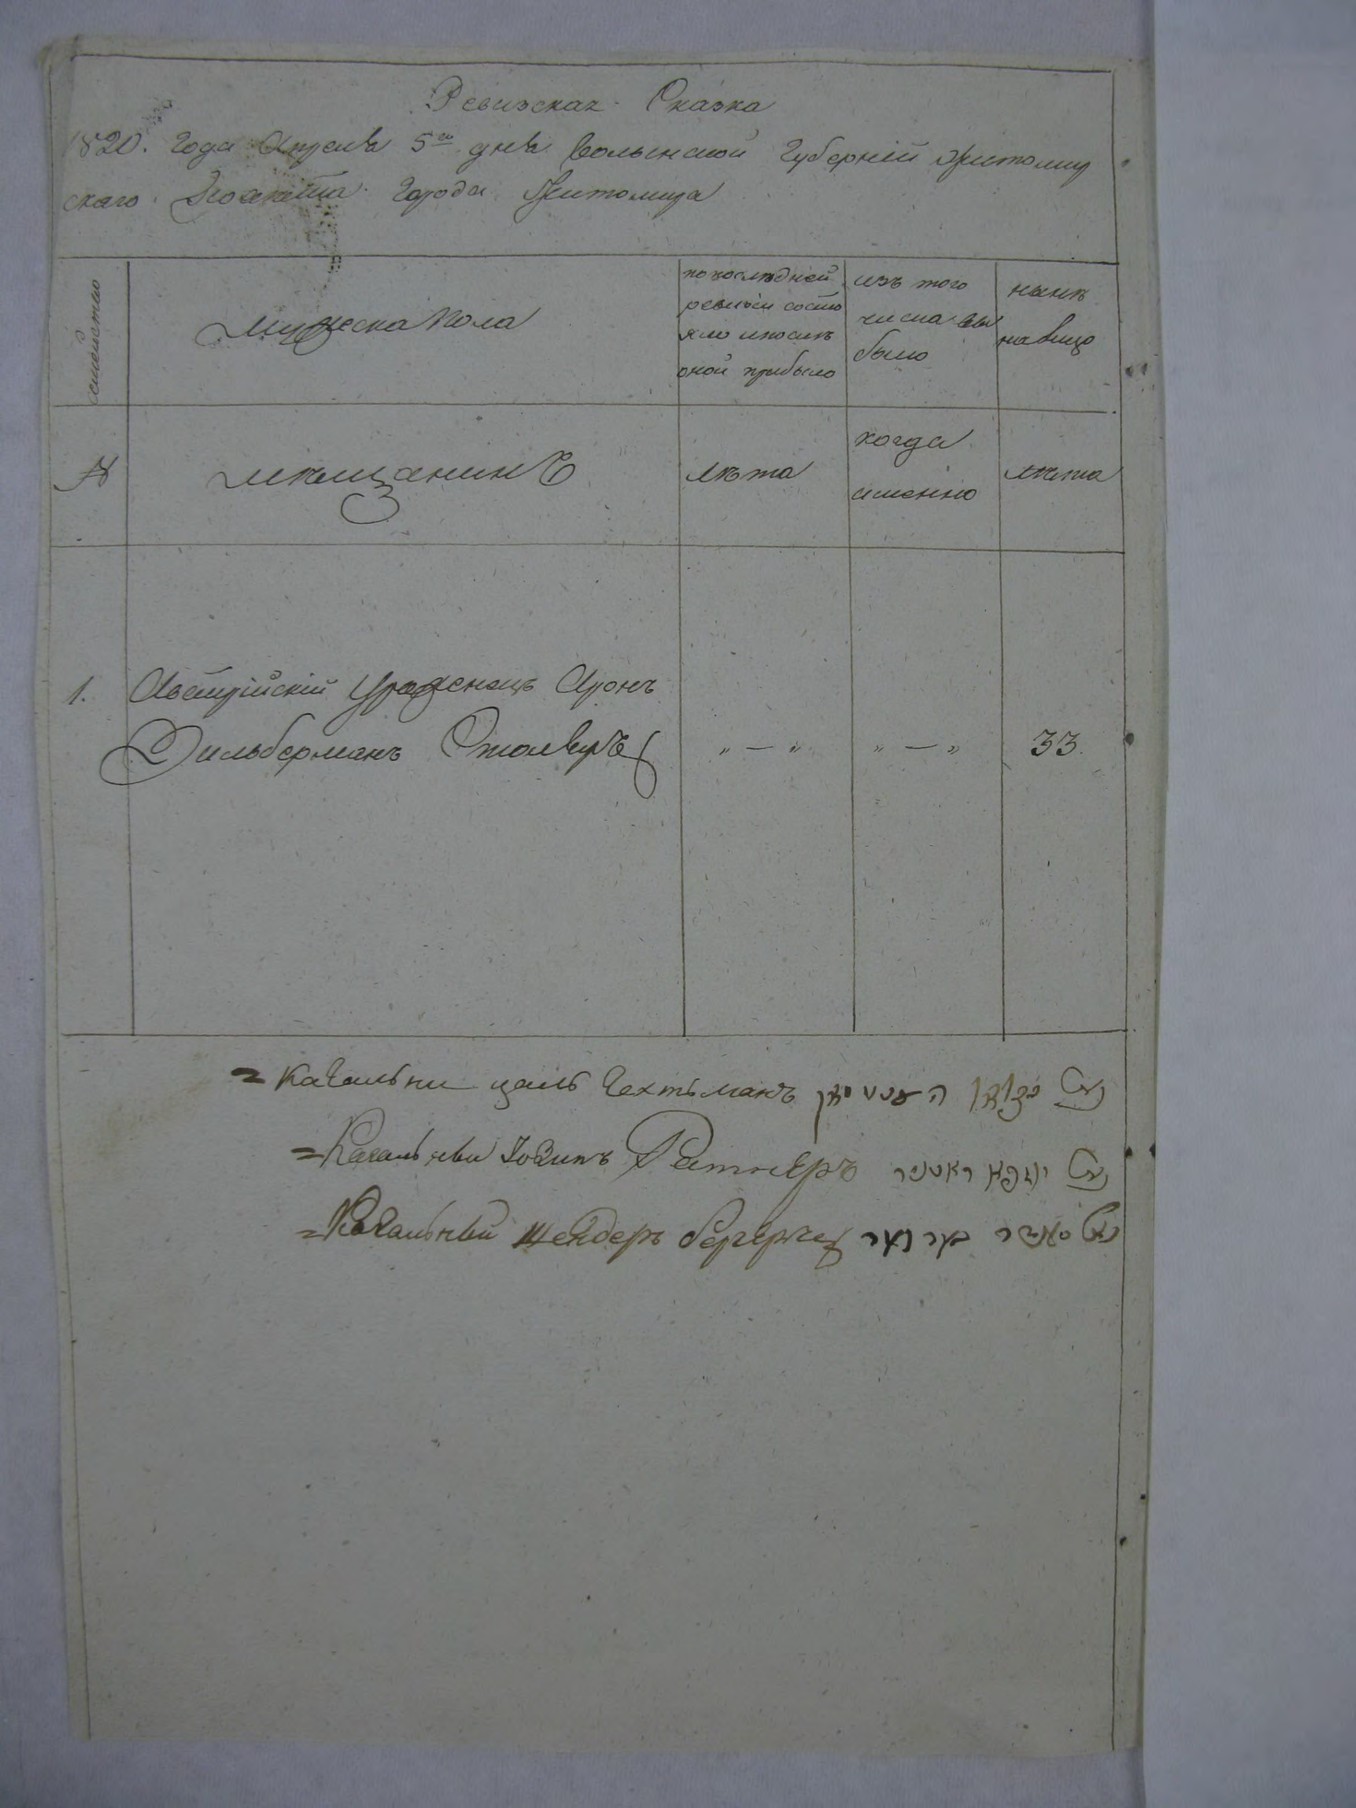 Ревизская Сказка
1820. года Апреля 5го дня Волынской Губерніи Житомир
скаго Повѣта Города Житомира
семейство
Мужеска пола
по послѣдней
ревизіи состо
яло и послѣ
оной прибыло
изъ того
числа вы
было
нынѣ
на лицо
№
мѣщанинъ
лѣта
когда
именно
лѣта
1.
Австрійскій Уроженецъ Аронъ
Зильберманъ Столяръ
„ — „
„ — „
33.
= Кагальни Гехтманъ
= Кагальны Ратнеръ ראטנר
= Кагальный Шендеръ